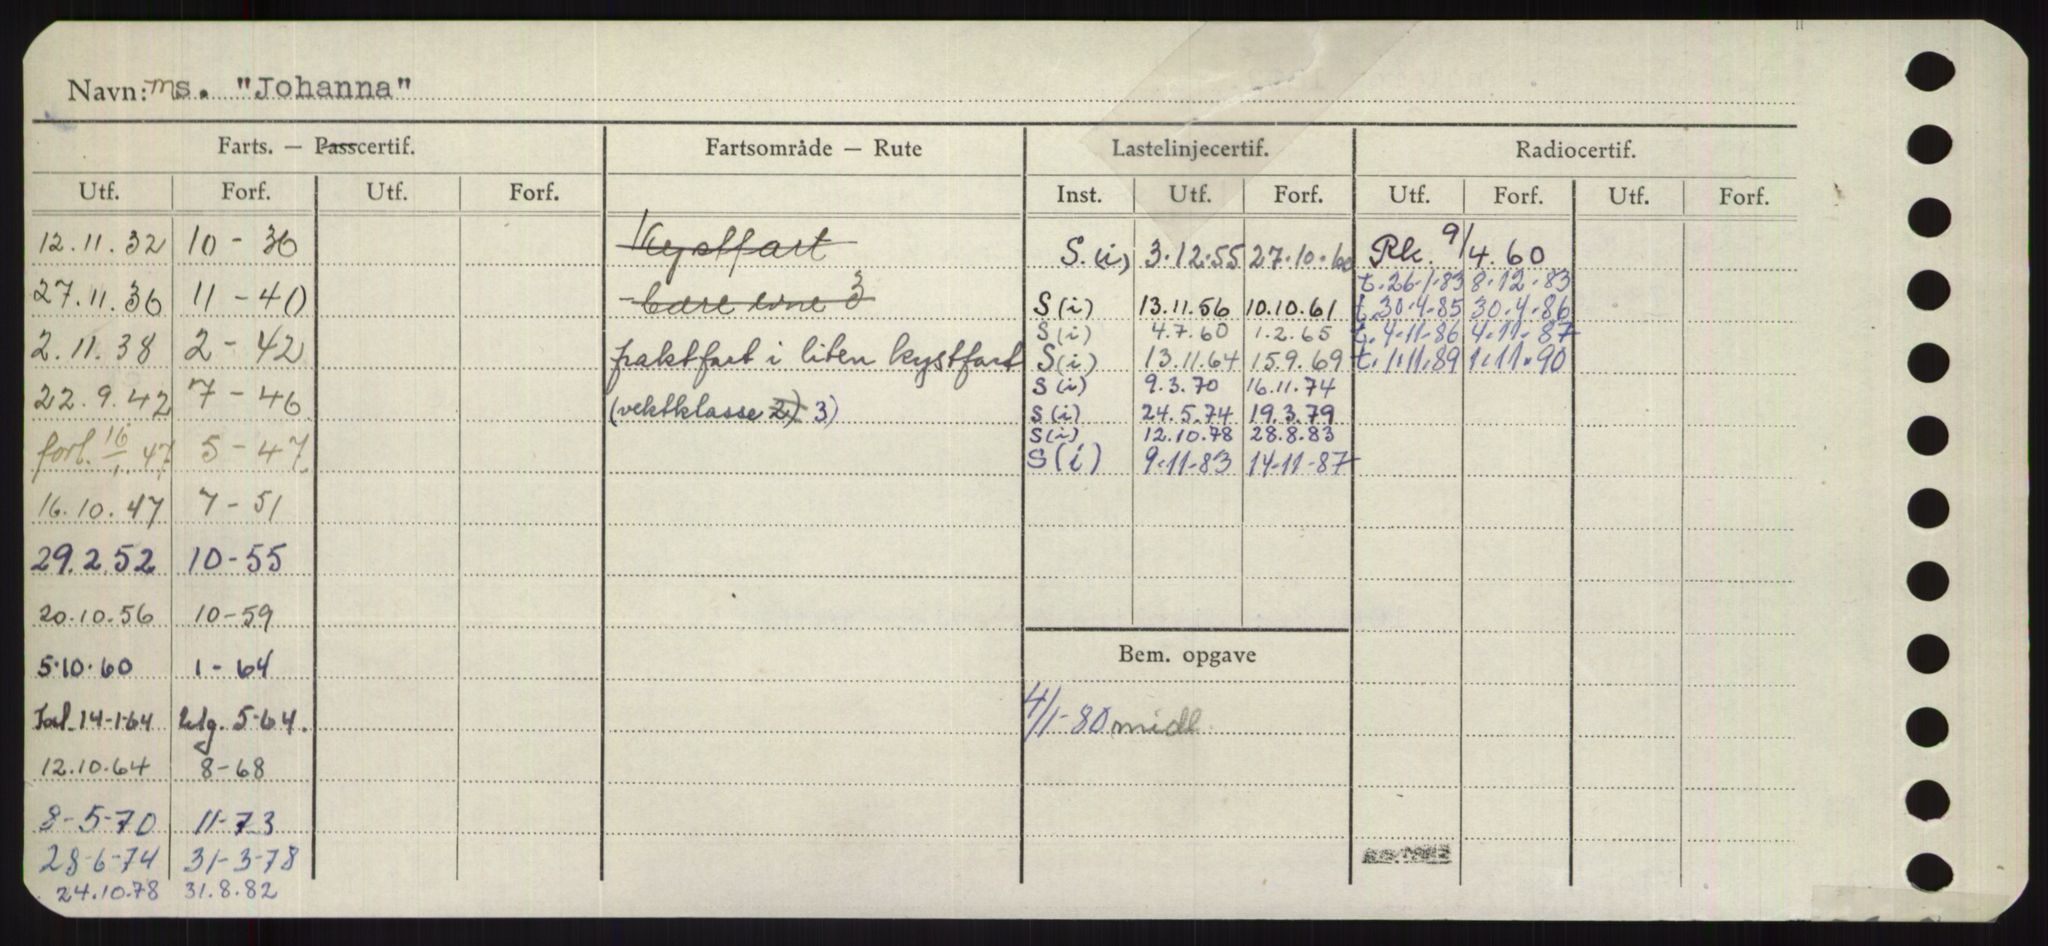 Navn: ms. "Johanna"
Farts. — Passcertif. Fartsområde — Rute Lastelinjecertif. Radiocertif.
Utf. Forf. Utf. Forf. Inst. Utf. Forf. Utf. Forf. Utf. Forf.
12.11.32 10 - 36 Kystfart S.(i) 3.12.55 27.10.60 Rk. 9/4.60
t.26.1.83 8.12.83
27.11.36 11 - 40 - bære evne 3 S(i) 13.11.56 10.10.61 t.30.4.85 30.4.86
S(i) 4.7.60 1.2.65 t.4.11.86 4.11.87
2.11.38 2 - 42 fraktfart i liten kystfart S(i) 13.11.64 15.9.69 t.1.11.89 1.11.90
S(i) 9.3.70 16.11.74
22.9.42 7 - 46 (vektklasse 2) 3) S(i) 24.5.74 19.3.79
S(i) 12.10.78 28.8.83
forl. 16/1.47 5 - 47 S(i) 9-11-83 14-11-87
16.10.47 7 - 51
29.2.52 10-55
20.10.56 10-59
5.10.60 1 - 64
Bem. opgave
14-1-64 5-64.
4/1-80 midl.
12.10.64 8-68
8-5-70 11-73
28-6-74 31-3-78
24.10.78 31.8.82